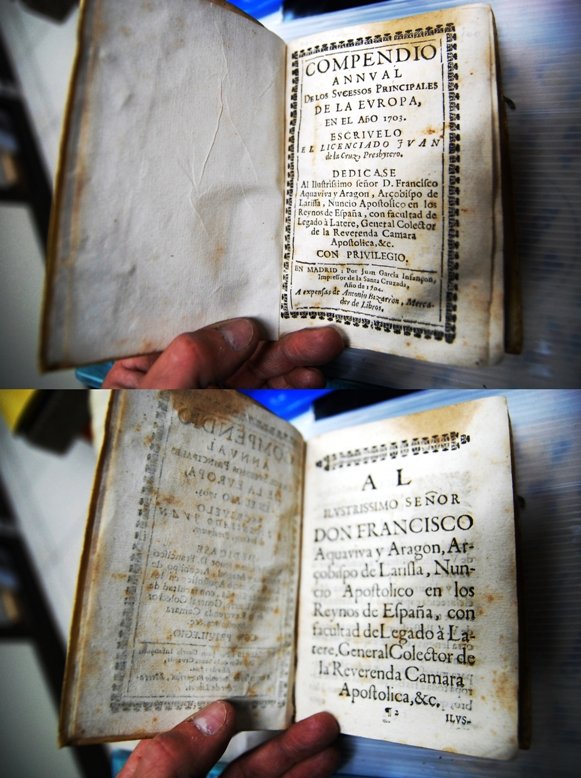 COMPENDIO
ANNVAL
DE LOS SVCESSOS PRINCIPALES
DE LA EVROPA,
EN EL AñO 1703.
ESCRIVELO
EL LICENCIADO JVAN
de la Cruz, Presbytero.
DEDICASE
Al Ilustrissimo señor D. Francisco
Aquaviva y Aragon, Arçobispo de
Larissa, Nuncio Apostolico en los
Reynos de España, con facultad de
Legado à Latere, General Colector
de la Reverenda Camara
Apostolica, &c.
CON PRIVILEGIO.
EN MADRID: Por Juan Garcia Infançon,
Impressor de la Santa Cruzada,
Año de 1704.
A expensas de Antonio Bizarròn, Merca-
der de Libros.
AL
ILVSTRISSIMO SEÑOR
DON FRANCISCO
Aquaviva y Aragon, Ar-
çobispo de Larissa, Nun-
cio Apostolico en los
Reynos de España, con
facultad de Legado à La-
tere, General Colector de
la Reverenda Camara
Apostolica, &c.
¶2 ILVS-